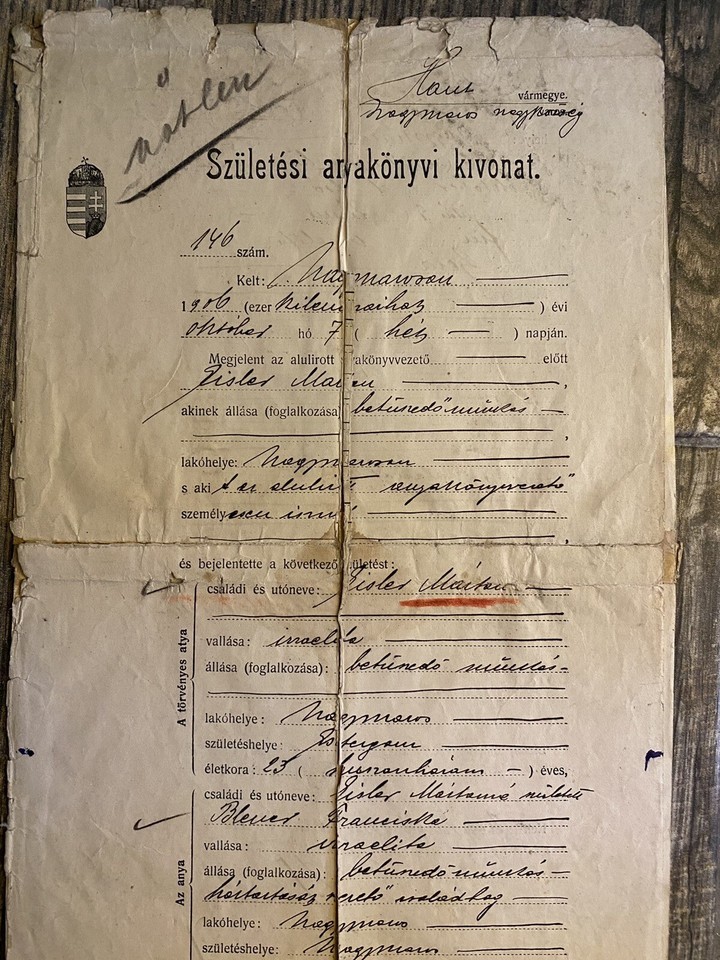 nőtlen
Hont vármegye.
Nagymaros nagyközség
Születési anyakönyvi kivonat.
146 szám.
Kelt: Nagymaroson
1906 (ezer kilencszázhat ) évi
október hó 7 ( hét ) napján.
Megjelent az alulirott anyakönyvvezető előtt
Eisler Márton ,
akinek állása (foglalkozása) betüszedő munkás
,
lakóhelye: Nagymaroson
s aki t az alulirott anyakönyvvezető
személyesen ismer
,
és bejelentette a következő születést:
A törvényes atya
családi és utóneve: Eisler Márton
vallása: izraelita
állása (foglalkozása): betüszedő munkás
lakóhelye: Nagymaros
születéshelye: Esztergom
életkora: 23 ( huszonhárom ) éves,
Az anya
családi és utóneve: Eisler Mártonné született
Blener Franciska
vallása: izraelita
állása (foglalkozása): betüszedő munkás
háztartását vezető családtag
lakóhelye: Nagymaros
születéshelye: Nagymaros